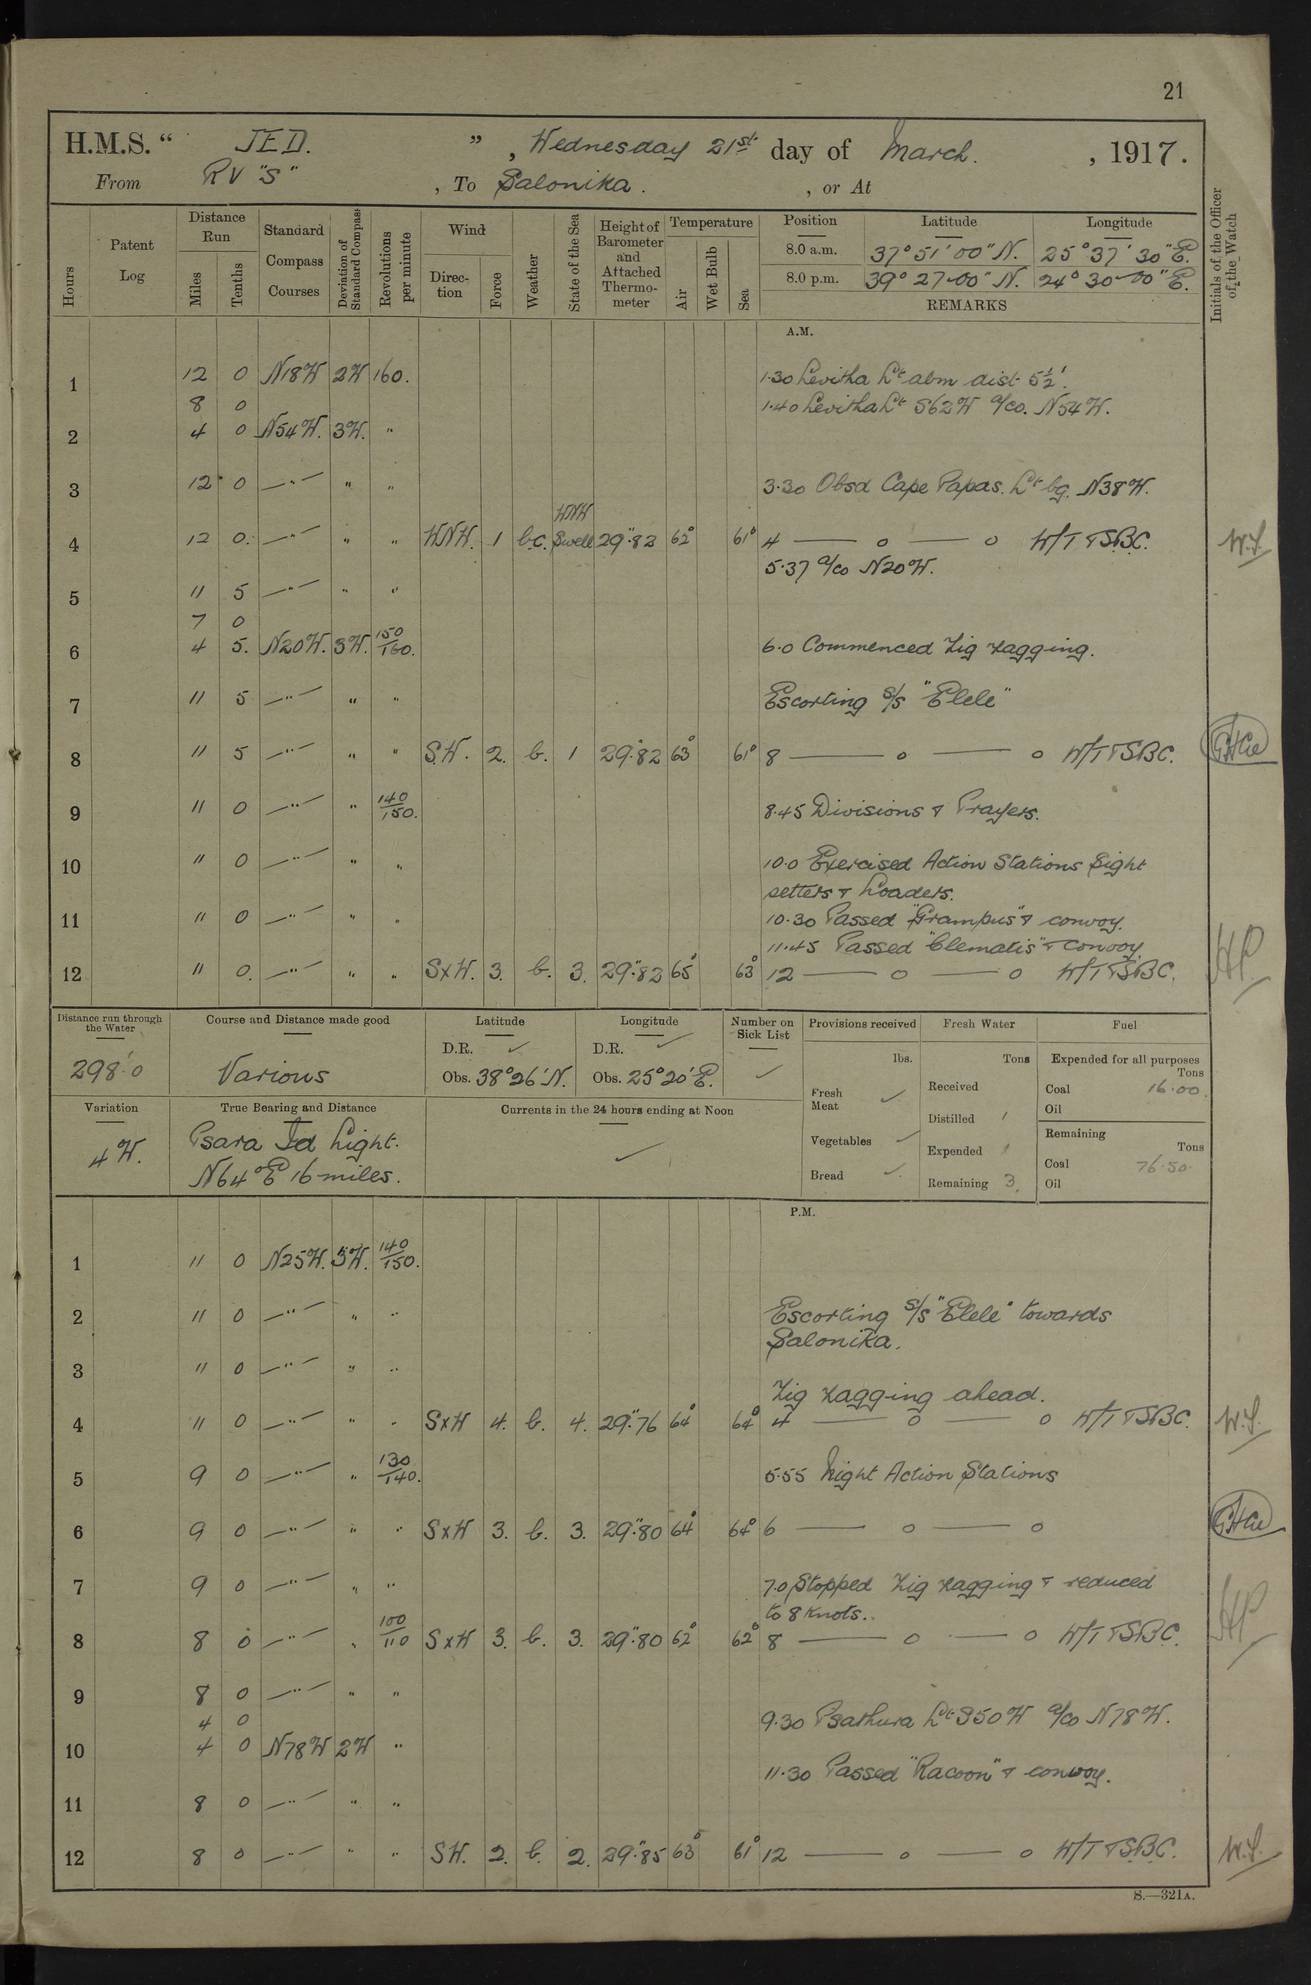 21
H.M.S. " JED. " , Wednesday 21st day of March. , 1917.
From RV "S" , To Salonika. , or At
Hours
Patent Log
Distance Run
Miles
Tenths
Standard Compass Courses
Deviation of Standard Compass
Revolutions per minute
Wind
Direction
Force
Weather
State of the Sea
Height of Barometer and Attached Thermometer
Temperature
Air
Wet Bulb
Sea
Position Latitude Longitude
8.0 a.m. 37° 51' 00" N. 25° 37' 30" E.
8.0 p.m. 39° 27-00" N. 24° 30-00" E.
REMARKS
Initials of the Officer of the Watch
A.M.
1 12 0 N18W 2W 160. 1.30 Levitha Lt abm dist 5½'.
8 0 1.40 Levitha Lt S62W a/co. N54W.
2 4 0 N54W. 3W. "
3 12 0 —"— " " 3.30 Obsd Cape Papas. Lt bg. N38W.
4 12 0. —"— " " WNW. 1 b.c. WNW Swell 29".82 62° 61° 4 — o — o W/T & SBC. W.S.
5.37 a/co N20W.
5 11 5 —"— " "
7 0
6 4 5. N20W. 3W. 150/160. 6.0 Commenced Zig zagging.
7 11 5 —"— " " Escorting s/s "Elele"
8 11 5 —"— " " S.W. 2. b. 1 29".82 63° 61° 8 — o — o W/T & SBC.
9 11 0 —"— " 140/150. 8.45 Divisions & Prayers.
10 11 0 —"— " " 10.0 Exercised Action Stations Sight
setters & Loaders.
11 11 0 —"— " " 10.30 Passed "Grampus" & convoy.
11.45 Passed "Clematis" & convoy.
12 11 0. —"— " " SxW. 3. b. 3. 29".82 65° 63° 12 — o — o W/T & SBC. HP.
Distance run through the Water
298'.0
Course and Distance made good
Various
Latitude
D.R. ✓
Obs. 38°26'N.
Longitude
D.R. ✓
Obs. 25°20'E.
Number on Sick List
✓
Provisions received
lbs.
Fresh Meat ✓
Vegetables ✓
Bread ✓
Fresh Water
Tons
Received
Distilled 1
Expended 1
Remaining 3.
Fuel
Expended for all purposes
Tons
Coal 16.00.
Oil
Remaining
Tons
Coal 76.50.
Oil
Variation
4W.
True Bearing and Distance
Psara Id Light.
N64°E 16 miles.
Currents in the 24 hours ending at Noon
✓
P.M.
1 11 0 N25W. 3W. 140/150.
2 11 0 —"— " " Escorting s/s "Elele" towards
Salonika.
3 11 0 —"— " "
Zig zagging ahead.
4 11 0 —"— " " SxW 4. b. 4. 29".76 64° 64° 4 — o — o W/T & SBC. W.S.
5 9 0 —"— " 130/140. 5.55 Night Action Stations
6 9 0 —"— " " SxW 3. b. 3. 29".80 64° 64° 6 — o — o
7 9 0 —"— " " 7.0 Stopped Zig zagging & reduced
to 8 Knots..
8 8 0 —"— " 100/110 SxW 3. b. 3. 29".80 62° 62° 8 — o — o W/T & SBC. HP
9 8 0 —"— " "
4 0 9.30 Psathura Lt S50W a/co N78W.
10 4 0 N78W 2W "
11.30 Passed "Racoon" & convoy.
11 8 0 —"— " "
12 8 0 —"— " " SW. 2. b. 2. 29".85 63° 61° 12 — o — o W/T & SBC. W.S.
S.—321A.